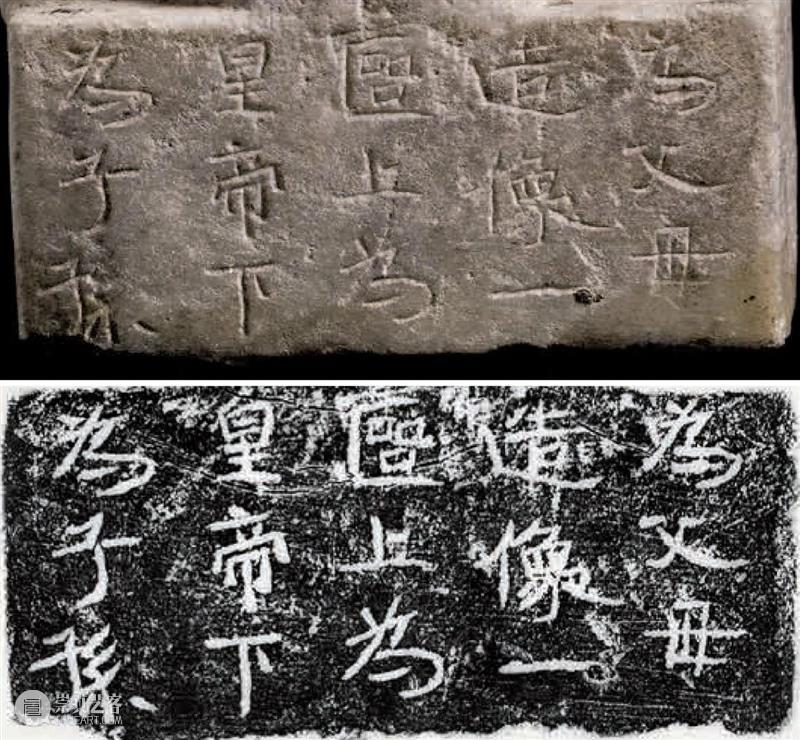 為父母
造像一
區上為
皇帝下
為子孫
為父母
造像一
區上為
皇帝下
為子孫
崇真艺客